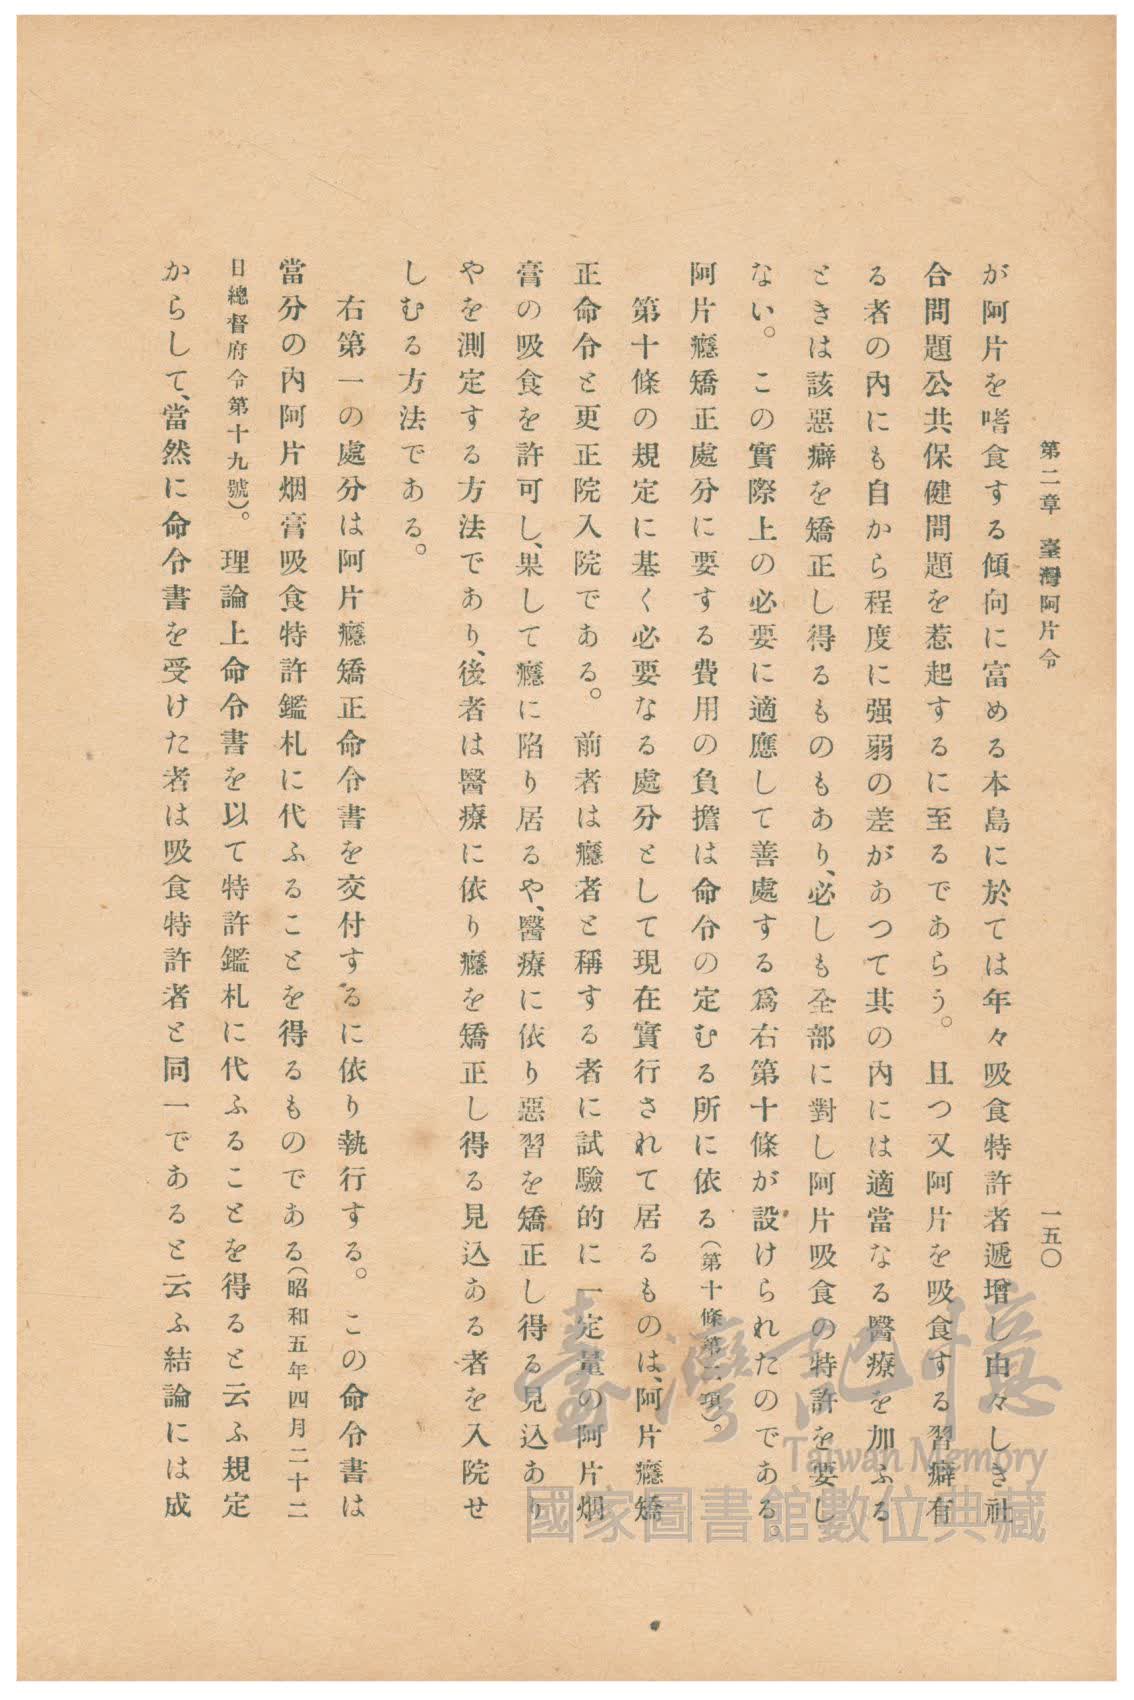 第二章 臺灣阿片令 一五〇
が阿片を嗜食する傾向に富める本島に於ては年々吸食特許者遞增し由々しき社
合問題公共保健問題を惹起するに至るであらう。且つ又阿片を吸食する習癖有
る者の內にも自から程度に强弱の差があつて其の內には適當なる醫療を加ふる
ときは該惡癖を矯正し得るものもあり、必しも全部に對し阿片吸食の特許を要し
ない。この實際上の必要に適應して善處する爲右第十條が設けられたのである。
阿片癮矯正處分に要する費用の負擔は命令の定むる所に依る(第十條第二項)。
第十條の規定に基く必要なる處分として現在實行されて居るものは、阿片癮矯
正命令と更正院入院である。前者は癮者と稱する者に試驗的に一定量の阿片烟
膏の吸食を許可し、果して癮に陷り居るや、醫療に依り惡習を矯正し得る見込あり
やを測定する方法であり、後者は醫療に依り癮を矯正し得る見込ある者を入院せ
しむる方法である。
右第一の處分は阿片癮矯正命令書を交付するに依り執行する。この命令書は
當分の內阿片烟膏吸食特許鑑札に代ふることを得るものである(昭和五年四月二十二
日總督府令第十九號)。理論上命令書を以て特許鑑札に代ふることを得ると云ふ規定
からして、當然に命令書を受けた者は吸食特許者と同一であると云ふ結論には成
臺灣記憶
Taiwan Memory
國家圖書館數位典藏